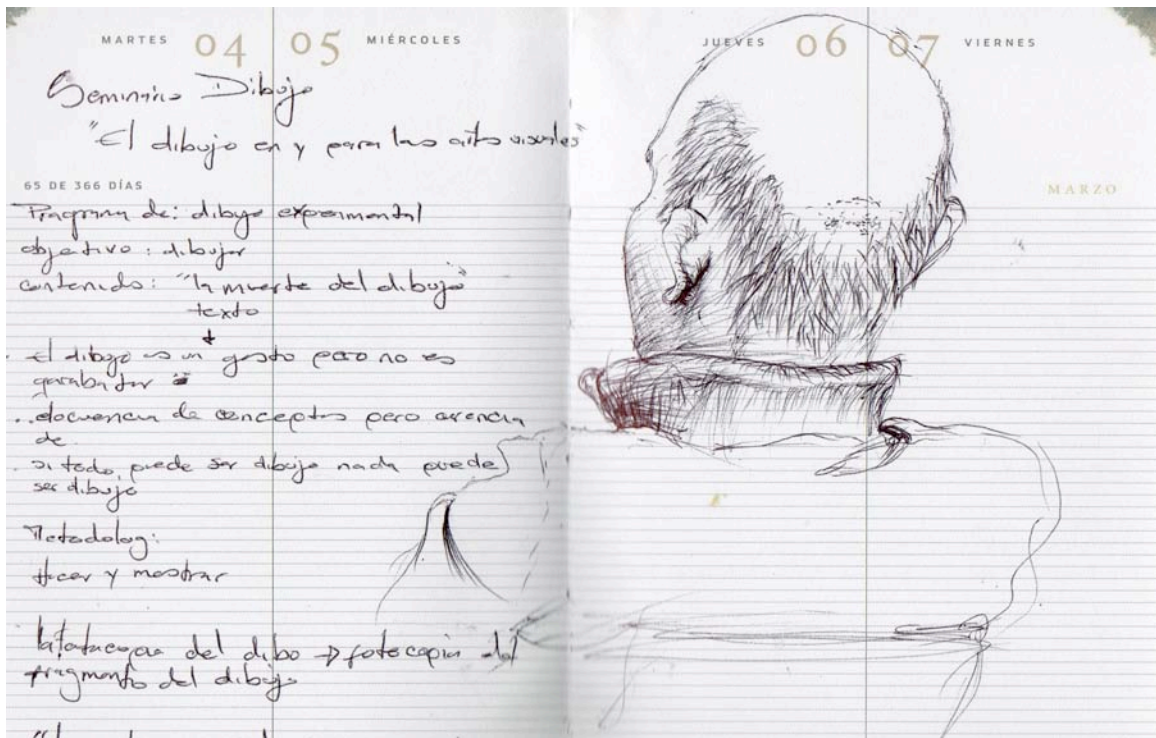 MARTES 04 05 MIÉRCOLES
JUEVES 06 07 VIERNES
Seminario Dibujo
"El dibujo en y para las artes visuales"
65 DE 366 DÍAS
MARZO
Programa de: dibujo experimental
objetivo: dibujar
contenido: "la muerte del dibujo"
texto
El dibujo es un gesto pero no es
garabatear
elocuencia de conceptos pero carencia
de
si todo puede ser dibujo nada puede
ser dibujo
Metodolog:
Hacer y mostrar
la fotocopia del dibo → fotocopia del
fragmento del dibujo